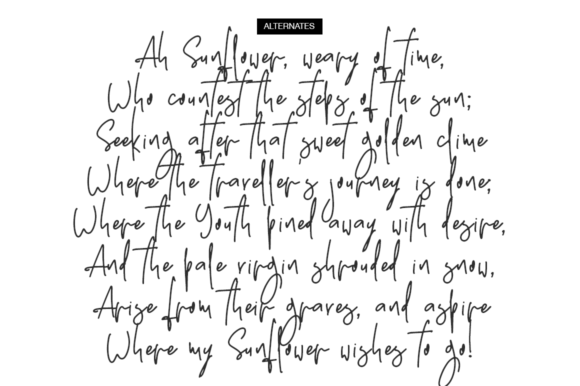 ALTERNATES
Ah Sunflower, weary of time,
Who countest the steps of the sun;
Seeking after that sweet golden clime
Where the travellers journey is done;
Where the Youth pined away with desire,
And the pale virgin shrouded in snow,
Arise from their graves, and aspire
Where my Sunflower wishes to go!